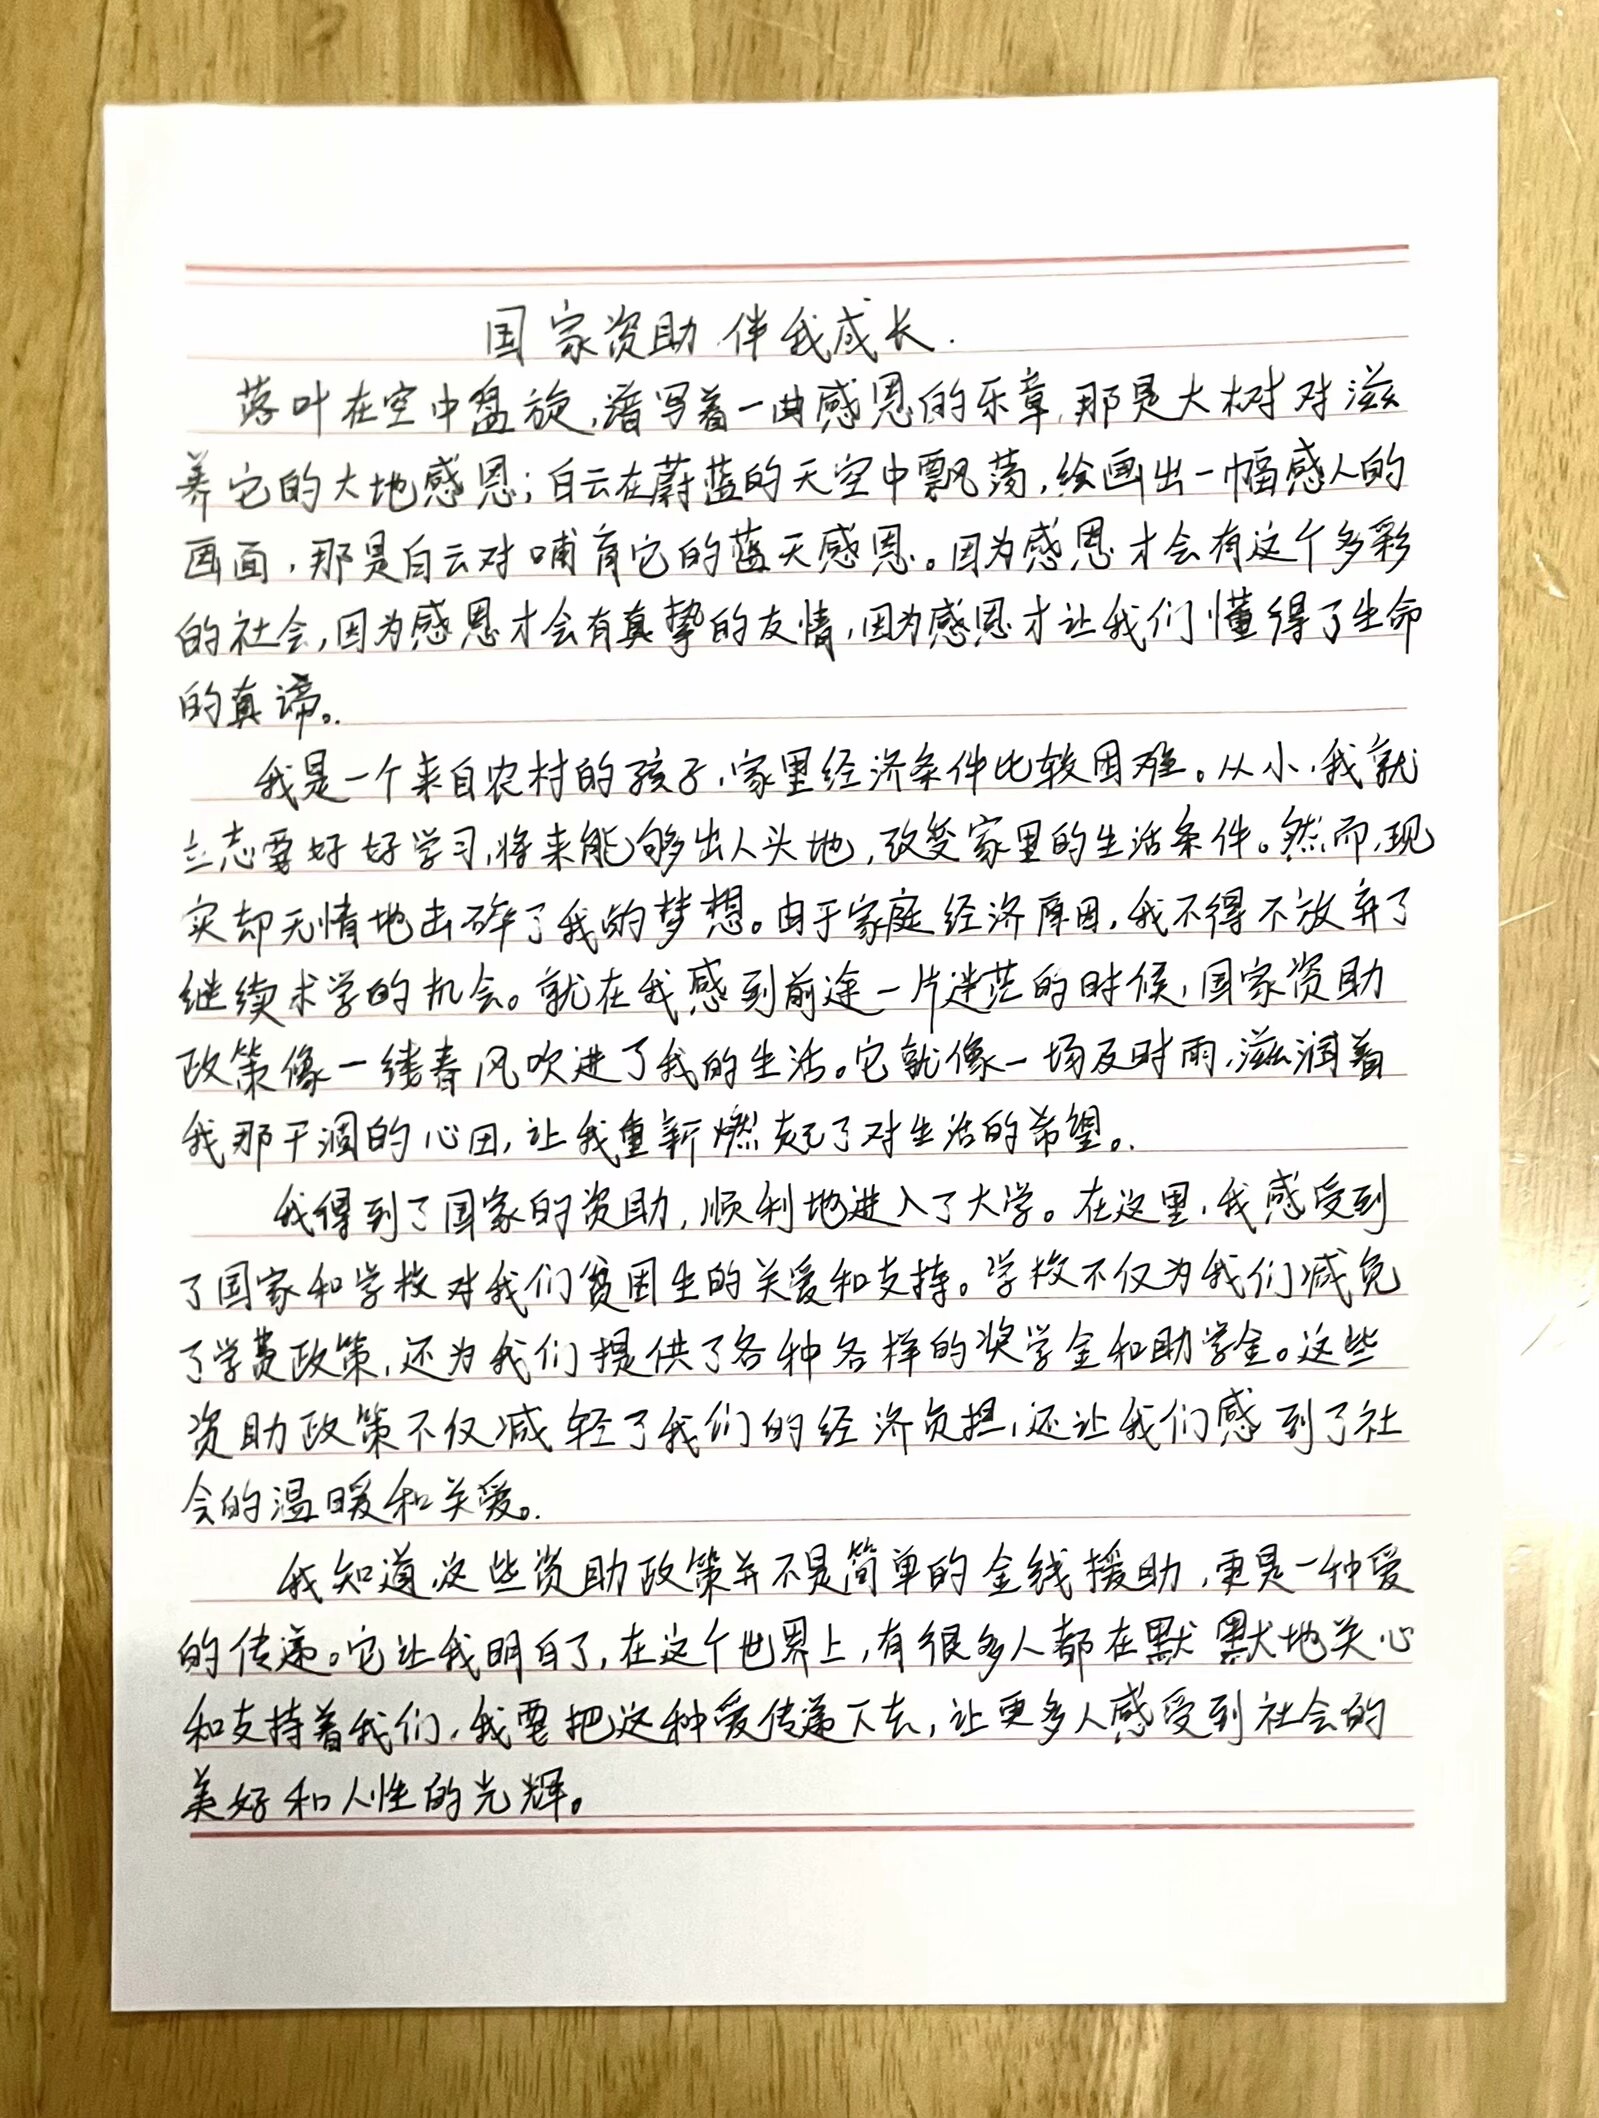 国家资助 伴我成长.
落叶在空中盘旋,谱写着一曲感恩的乐章,那是大树对滋
养它的大地感恩;白云在蔚蓝的天空中飘荡,绘画出一幅感人的
画面,那是白云对哺育它的蓝天感恩。因为感恩才会有这个多彩
的社会,因为感恩才会有真挚的友情,因为感恩才让我们懂得了生命
的真谛。
我是一个来自农村的孩子,家里经济条件比较困难。从小,我就
立志要好好学习,将来能够出人头地,改变家里的生活条件。然而,现
实却无情地击碎了我的梦想。由于家庭经济原因,我不得不放弃了
继续求学的机会。就在我感到前途一片迷茫的时候,国家资助
政策像一缕春风吹进了我的生活。它就像一场及时雨,滋润着
我那干涸的心田,让我重新燃起了对生活的希望。
我得到了国家的资助,顺利地进入了大学。在这里,我感受到
了国家和学校对我们贫困生的关爱和支持。学校不仅为我们减免
了学费政策,还为我们提供了各种各样的奖学金和助学金。这些
资助政策不仅减轻了我们的经济负担,还让我们感到了社
会的温暖和关爱。
我知道,这些资助政策并不是简单的金钱援助,更是一种爱
的传递。它让我明白了,在这个世界上,有很多人都在默默地关心
和支持着我们,我要把这种爱传递下去,让更多人感受到社会的
美好和人性的光辉。